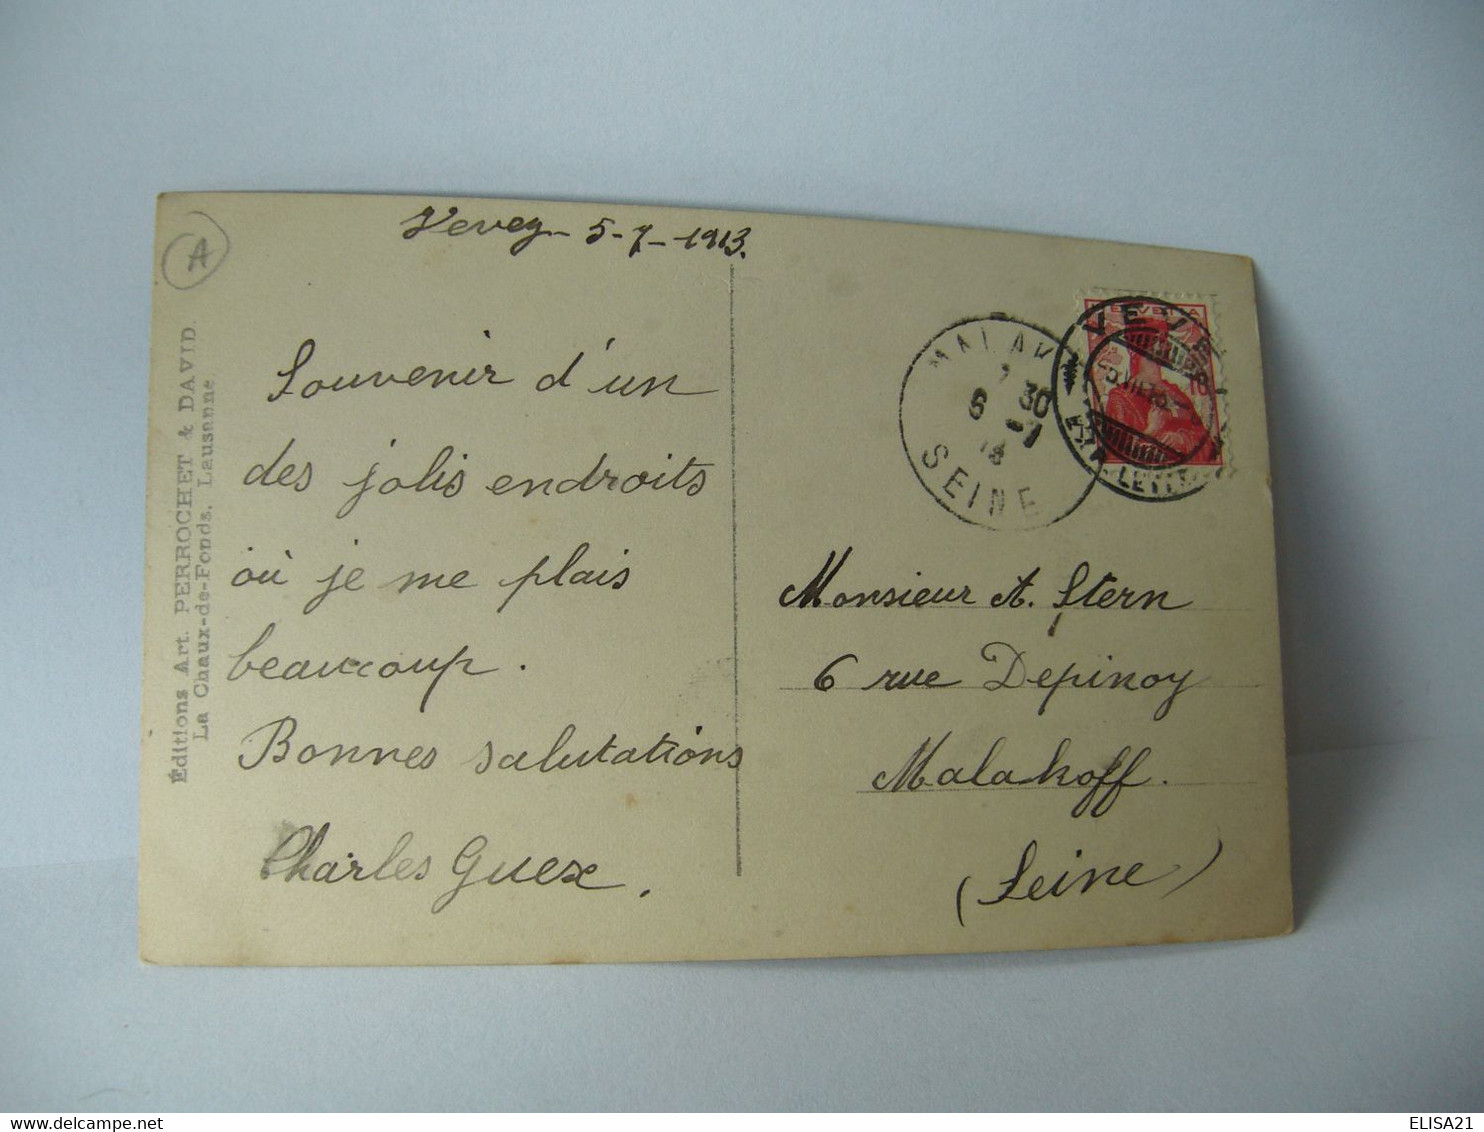 Vevey - 5-7-1913.
A
Éditions Art. PERROCHET & DAVID.
La Chaux-de-Fonds, Lausanne
Souvenir d'un
des jolis endroits
où je me plais
beaucoup.
Bonnes salutations
Charles Guex.
HELVETIA
10
VEVEY
MALAKOFF
7 30
6 -7
13
SEINE
Monsieur A. Stern
6 rue Depinoy
Malakoff.
(Seine)
delcampe.net
ELISA21